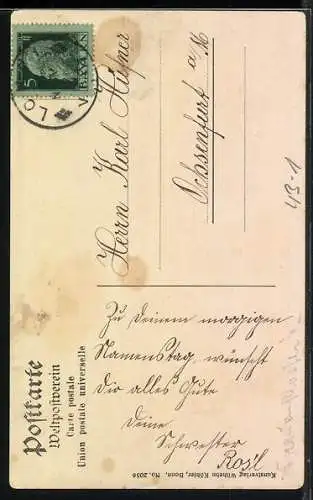 Postkarte
Weltpostverein
Carte postale
Union postale universelle
BAYERN
5
Herrn Karl Hüfner
Ochsenfurt a/M
43-1
Zu Deinem morgigen
Namenstag, wünscht
Dir alles Gute
Deine
Schwester
Ros'l
Kunstverlag Wilhelm Köhler, Bonn, No. 2056